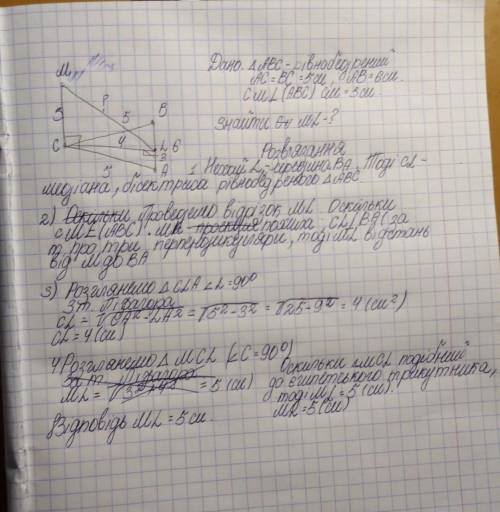 Дано. △ABC - рівнобедрений
AC = BC = 5 см, AB = 6 см.
CM ⊥ (ABC) CM = 3 см.
Знайти ML - ?
M
P
3
5
B
C
4
L 6
3
5
A
Розв'язання
1. Нехай L - середина BA. Тоді CL -
медіана, бісектриса рівнобедреного △ABC
2) Проведемо відрізок ML. Оскільки
CM ⊥ (ABC). ML похила, CL ⊥ BA (за
т. про три перпендикуляри, тоді ML відстань
від M до BA
3) Розглянемо △CLA ∠L = 90°
З т. Піфагора
CL = √CA² - LA² = √5² - 3² = √25 - 9² = 4 (см²)
CL = 4 (см)
4 Розглянемо △MCL (∠C = 90°)
За т. Піфагора
ML = = 5 (см)
Оскільки △MCL подібний
до єгипетського трикутника,
тоді ML = 5 (см).
ML = 5 (см)
Відповідь ML = 5 см.